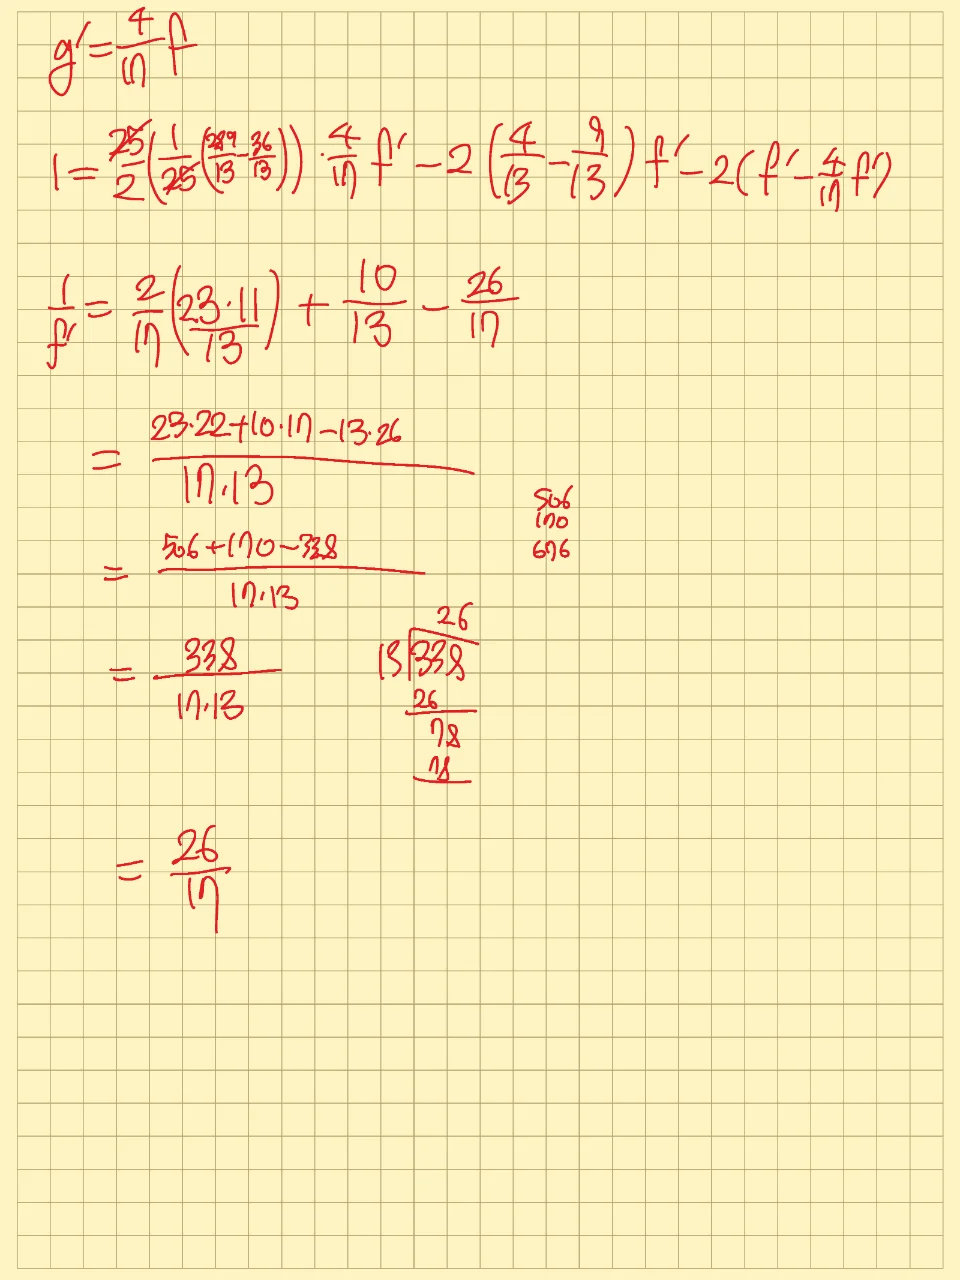 g' = 4/17 f
1 = 25/2 (1/25 (289/13 - 36/13)) · 4/17 f' - 2 (4/13 - 9/13) f' - 2(f' - 4/17 f')
1/f' = 2/17 (23·11/13) + 10/13 - 26/17
= (23·22+10·17-13·26)/(17·13)
506
170
676
= (506+170-338)/(17·13)
= 338/(17·13)
26
13)338
26
78
78
= 26/17